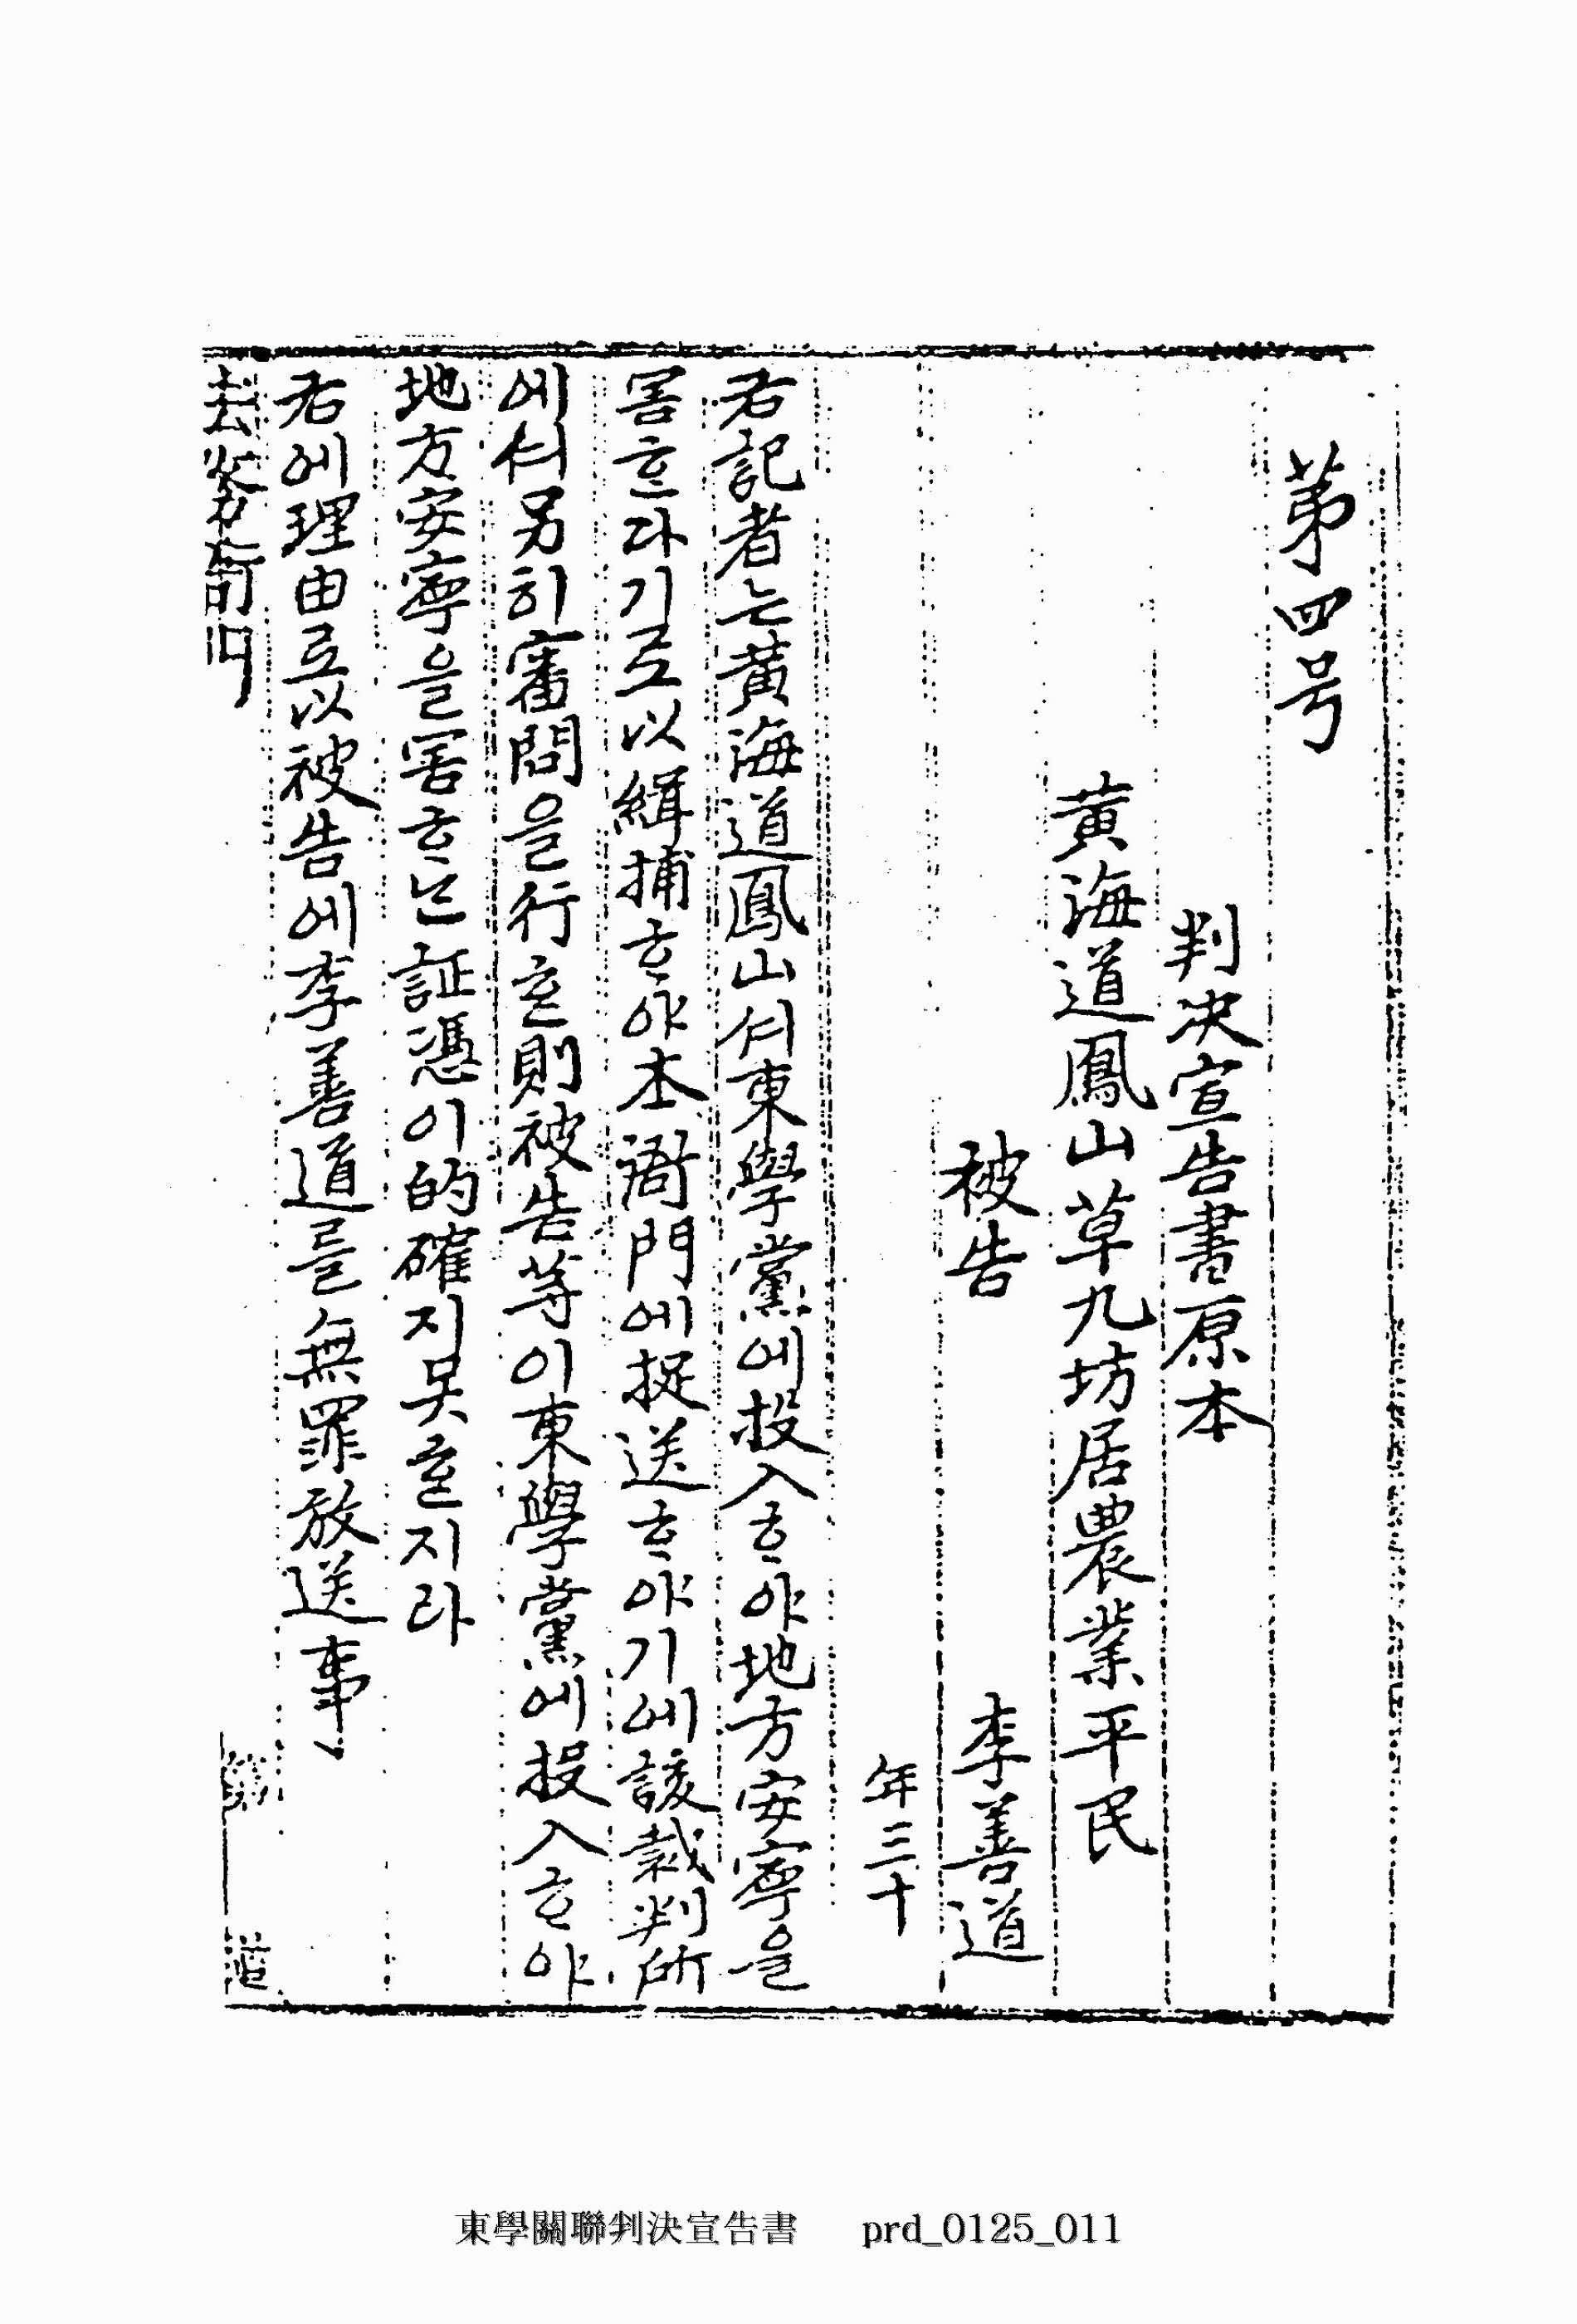 第四号
判決宣告書原本
黃海道鳳山草九坊居農業平民
被告 李善道
年三十
右記者는黃海道鳳山셔東學黨에投入ᄒᆞ야地方安寧을
害ᄒᆞᆫ다기로以緝捕ᄒᆞ야本衙門에捉送ᄒᆞ야기에該裁判所
에셔另히審問을行ᄒᆞᆫ則被告等이東學黨에投入ᄒᆞ야
地方安寧을害ᄒᆞᄂᆞᆫ証憑이的確지못ᄒᆞᆫ지라
右에理由로以被告에李善道를無罪放送事
法務衙門
東學關聯判決宣告書 prd_0125_011